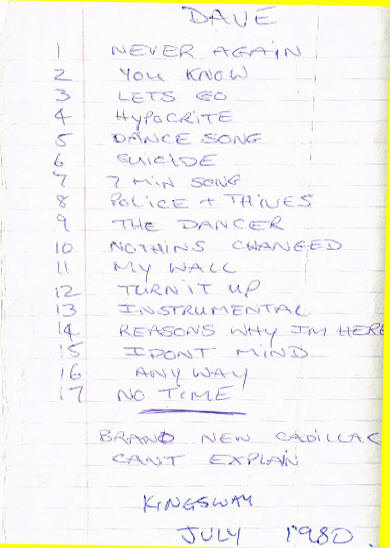 DAVE
1 NEVER AGAIN
2 YOU KNOW
3 LETS GO
4 HYPOCRITE
5 DANCE SONG
6 SUICIDE
7 7 MIN SONG
8 POLICE + THIVES
9 THE DANCER
10 NOTHINS CHANGED
11 MY WALL
12 TURN IT UP
13 INSTRUMENTAL
14 REASONS WHY IM HERE
15 I DONT MIND
16 ANYWAY
17 NO TIME
BRAND NEW CADILLAC
CANT EXPLAIN
KINGSWAY
JULY 1980.